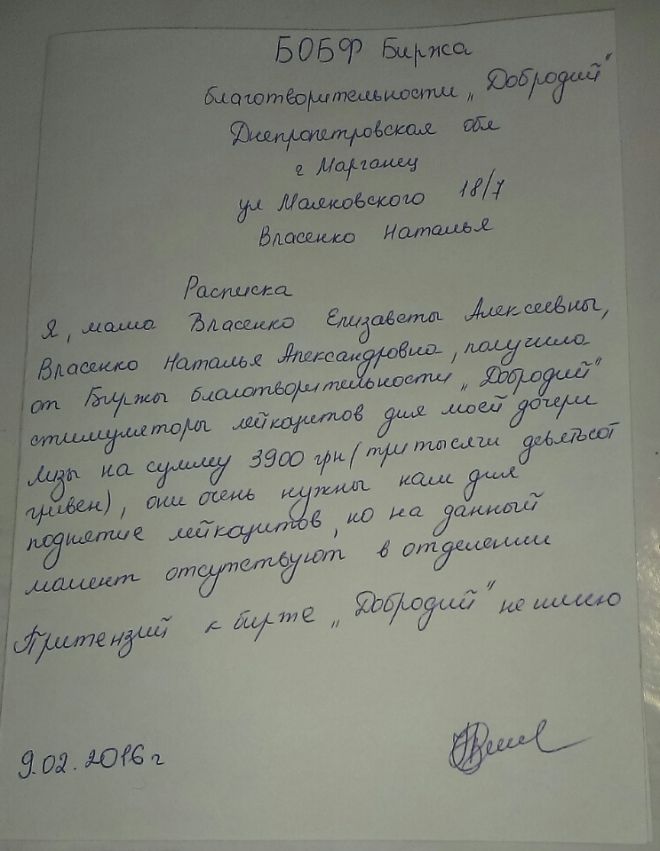 БОБФ Биржа
благотворительности „Добродий"
Днепропетровская обл
г Марганец
ул Маяковского 18/7
Власенко Наталья
Расписка
Я, мама Власенко Елизаветы Алексеевны,
Власенко Наталья Александровна, получила
от Биржы благотворительности „Добродий"
стимуляторы лейкоцитов для моей дочери
Лизы на сумму 3900 грн (три тысячи девятьсот
гривен), они очень нужны нам для
поднятие лейкоцитов, но на данный
момент отсутствуют в отделении
Притензий к бирже „Добродий" не имею
9.02.2016 г